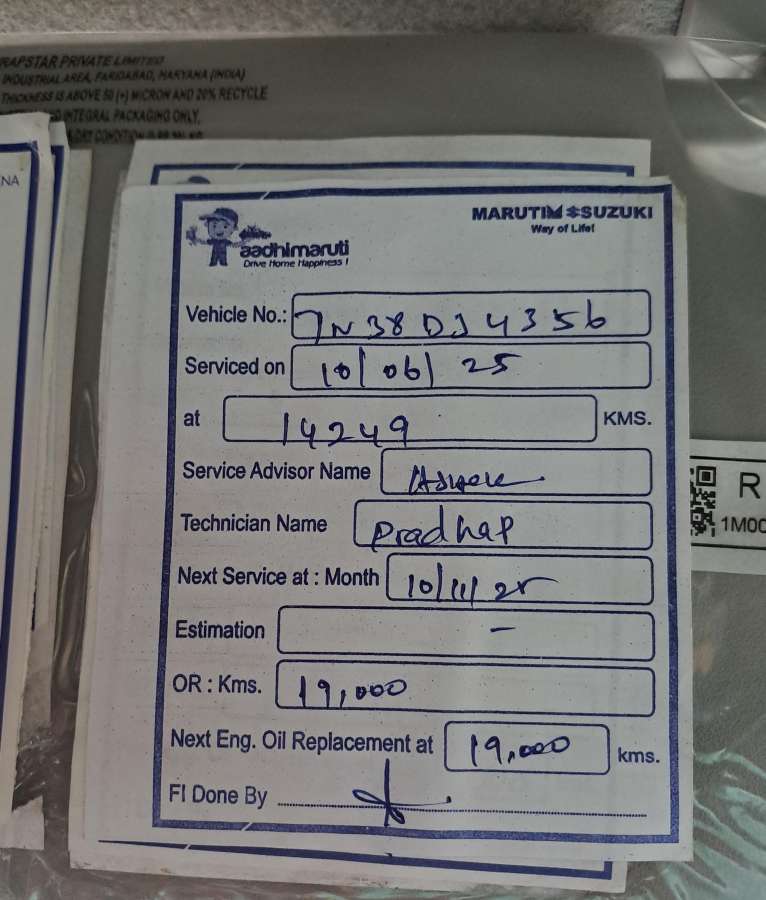 RAPSTAR PRIVATE LIMITED
INDUSTRIAL AREA, FARIDABAD, HARYANA (INDIA)
THICKNESS IS ABOVE 50 (+) MICRON AND 20% RECYCLE
INTEGRAL PACKAGING ONLY,
DRY CONDITION
NA
MARUTI SUZUKI
Way of Life!
aadhimaruti
Drive Home Happiness !
Vehicle No.: TN38 DJ 4356
Serviced on 10/06/25
at 14249 KMS.
Service Advisor Name
Technician Name Pradhap
Next Service at : Month 10/11/25
Estimation –
OR : Kms. 19,000
Next Eng. Oil Replacement at 19,000 kms.
FI Done By
R
1M00